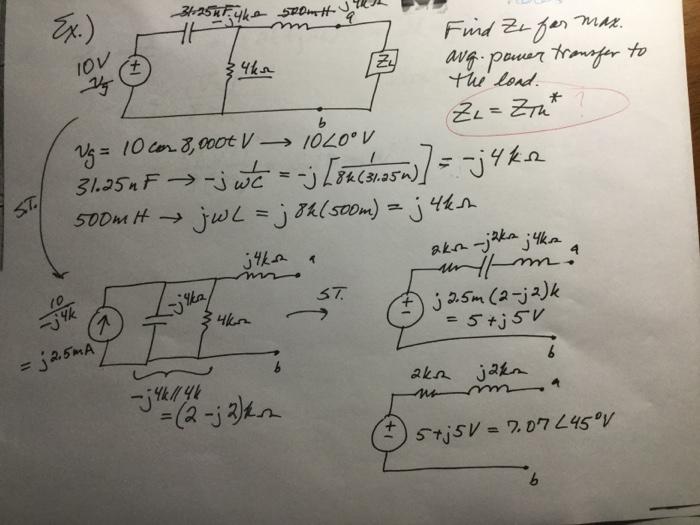 Ex.)
31.25nF -j4kΩ 500mH j4kΩ
a
10V
Vg
+
-
4kΩ
ZL
b
Find ZL for max.
avg. power transfer to
the load.
ZL = ZTh* ?
Vg = 10 cos 8,000t V → 10∠0° V
31.25nF → -j 1/ωC = -j [1/8k(31.25n)] = -j4kΩ
500mH → jωL = j 8k(500m) = j4kΩ
S.T.
j4kΩ a
10/-j4k
= j2.5mA
-j4kΩ
4kΩ
b
-j4k//4k
= (2-j2)kΩ
S.T.
2kΩ -j2kΩ j4kΩ
a
+
-
j2.5m(2-j2)k
= 5+j5V
b
2kΩ j2kΩ
a
+
-
5+j5V = 7.07∠45°V
b